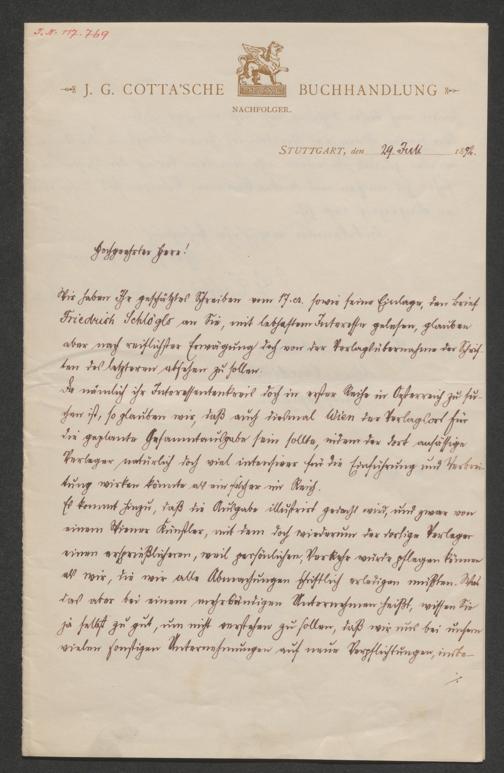 J. N. 117.769
J. G. COTTA'SCHE BUCHHANDLUNG
NACHFOLGER.
STUTTGART, den 29. Juli 1892.
Hochgeehrter Herr!
Wir haben Ihr geschätztes Schreiben vom 17. cr. sowie seine Einlage, den Brief
Friedrich Schlögls an Sie, mit lebhaftem Interesse gelesen, glauben
aber nach reiflichster Erwägung doch von der Verlagsübernahme der Schrif-
ten des letzteren absehen zu sollen.
Da nämlich ihr Interessentenkreis doch in erster Reihe in Oesterreich zu su-
chen ist, so glauben wir, daß auch diesmal Wien der Verlagsort für
die geplante Gesammtausgabe sein sollte, indem der dort ansässige
Verleger natürlich doch viel intensiver für die Einführung und Verbrei-
tung wirken könnte als ein solcher im Reich.
Es kommt hinzu, daß die Ausgabe illustrirt gedacht wird, und zwar von
einem Wiener Künstler, mit dem doch wiederum der dortige Verleger
einen ersprießlicheren, weil persönlichen, Verkehr würde pflegen können
als wir, die wir alle Abmachungen schriftlich erledigen müßten. Was
das aber bei einem mehrbändigen Unternehmen heißt, wissen Sie
ja selbst zu gut, um nicht verstehen zu sollen, daß wir uns bei unsern
vielen sonstigen Unternehmungen auf neue Verpflichtungen, insbe-
./.